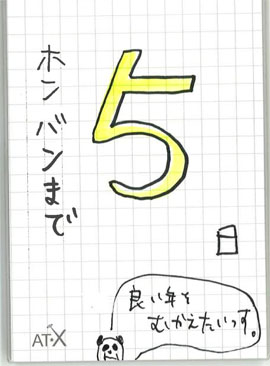 ホンバンまで
5
日
良い年を
むかえたいっす。
AT-X